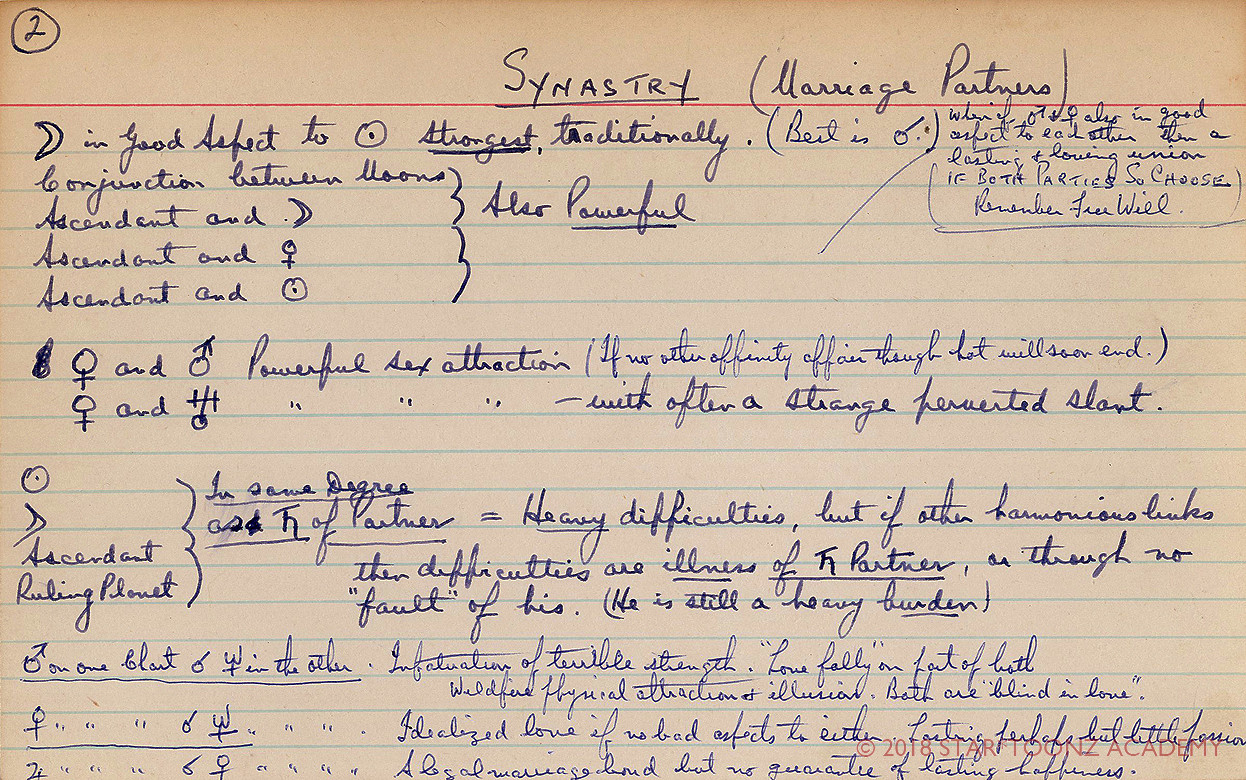 2
SYNASTRY (Marriage Partners)
☽ in Good Aspect to ☉ strongest, traditionally. (Best is ☌.)
when if ♂ & ♀ also in good
aspect to each other then a
lasting & loving union
IF BOTH PARTIES SO CHOOSE
Remember Free Will.
Conjunction between Moons
Ascendant and ☽
Ascendant and ♀
Ascendant and ☉
Also Powerful
♀ and ♂ Powerful sex attraction (If no other affinity affair though hot will soon end.)
♀ and ♅ " " " — with often a strange perverted slant.
☉
☽
Ascendant
Ruling Planet
In same Degree
as ♄ of Partner = Heavy difficulties, but if other harmonious links
then difficulties are illness of ♄ Partner, or through no
"fault" of his. (He is still a heavy burden)
♂ on one Chart ☌ ♆ in the other. Infatuation of terrible strength. "Love folly" on part of both
Wildfire physical attraction & illusion. Both are "blind in love".
♀ " " " ☌ ♆ " " " . Idealized love if no bad aspects to either. Lasting perhaps but little passion
♃ " " " ☌ ♀ " " " " A legal marriage bond but no guarantee of lasting happiness.
© 2018 STAR*TOONZ ACADEMY